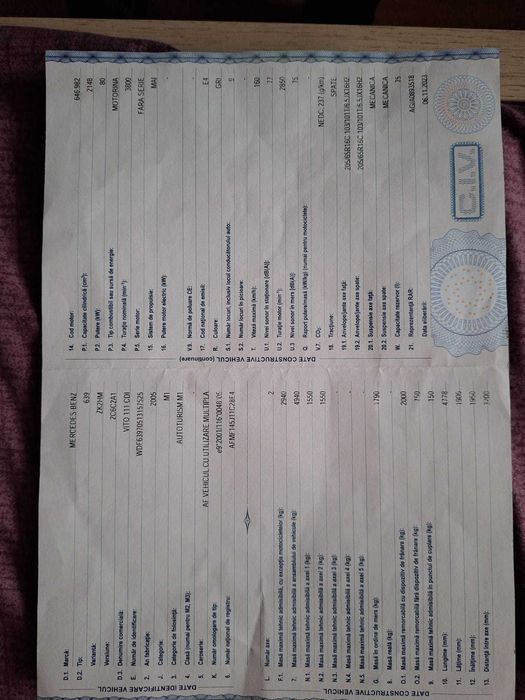 DATE IDENTIFICARE VEHICUL
D.1. Marcă: MERCEDES-BENZ
D.2. Tip: 639
Varianta: ZK2HM
Versiune: ZC6C2ZA1
D.3. Denumire comercială: VITO 111 CDI
E. Număr de identificare:
2. An fabricaţie: 2005
J. Categorie: M1
3. Categoria de folosinţă: AUTOTURISM M1
4. Clasa (numai pentru M2, M3):
5. Caroserie: AF VEHICUL CU UTILIZARE MULTIPLA
K. Număr omologare de tip:
6. Număr naţional de registru:
L. Număr axe: 2
F.1. Masă maximă tehnic admisibilă, cu excepţia motocicletelor (kg): 2940
7. Masă maximă tehnic admisibilă a ansamblului de vehicule (kg): 4940
N.1 Masă maximă tehnic admisibilă a axei 1 (kg): 1550
N.2 Masă maximă tehnic admisibilă a axei 2 (kg): 1550
N.3 Masă maximă tehnic admisibilă a axei 3 (kg):
N.4 Masă maximă tehnic admisibilă a axei 4 (kg):
N.5 Masă maximă tehnic admisibilă a axei 5 (kg):
G. Masă în ordine de mers (kg):
8. Masă reală (kg):
O.1 Masă maximă remorcabilă cu dispozitiv de frânare (kg): 2000
O.2 Masă maximă remorcabilă fără dispozitiv de frânare (kg): 750
9. Masă maximă tehnic admisibilă în punctul de cuplare (kg): 150
10. Lungime (mm): 4778
11. Lăţime (mm): 1906
12. Înălţime (mm): 1950
13. Distanţa între axe (mm): 3200
DATE CONSTRUCTIVE VEHICUL (continuare)
14. Cod motor: 646.982
P.1. Capacitate cilindrică (cm³): 2148
P.2. Putere (kW): 80
P.3. Tip combustibil sau sursă de energie: MOTORINA
P.4. Turaţie nominală (min⁻¹): 3800
P.5. Serie motor: FARA SERIE
15. Sistem de propulsie: MAI
16. Putere motor electric (kW): -
V.9. Normă de poluare CE: -
17. Cod naţional de emisii: E4
R. Culoare: GRI
S.1. Număr locuri, inclusiv locul conducătorului auto: 9
S.2. Număr locuri în picioare: -
T. Viteza maximă (km/h): 160
U.1. Nivel sonor în staţionare [dB(A)]: 77
U.2. Turaţie motor (min⁻¹): 2850
U.3 Nivel sonor în mers [dB(A)]: 75
Q. Raport putere/masă (kW/kg) (numai pentru motociclete): -
V.7. CO₂: NEDC: 237 (g/km)
18. Tracţiune: SPATE
19.1. Anvelope/jante axe faţă: 205/65R16C 103/101T/6.5JX16H2
19.2. Anvelope/jante axe spate: 205/65R16C 103/101T/6.5JX16H2
20.1. Suspensie axe faţă: MECANICA
20.2. Suspensie axe spate: MECANICA
W. Capacitate rezervor (l): 75
21. Reprezentanţă RAR: AG/A0893518
Data eliberării: 06.11.2023
C.I.V.